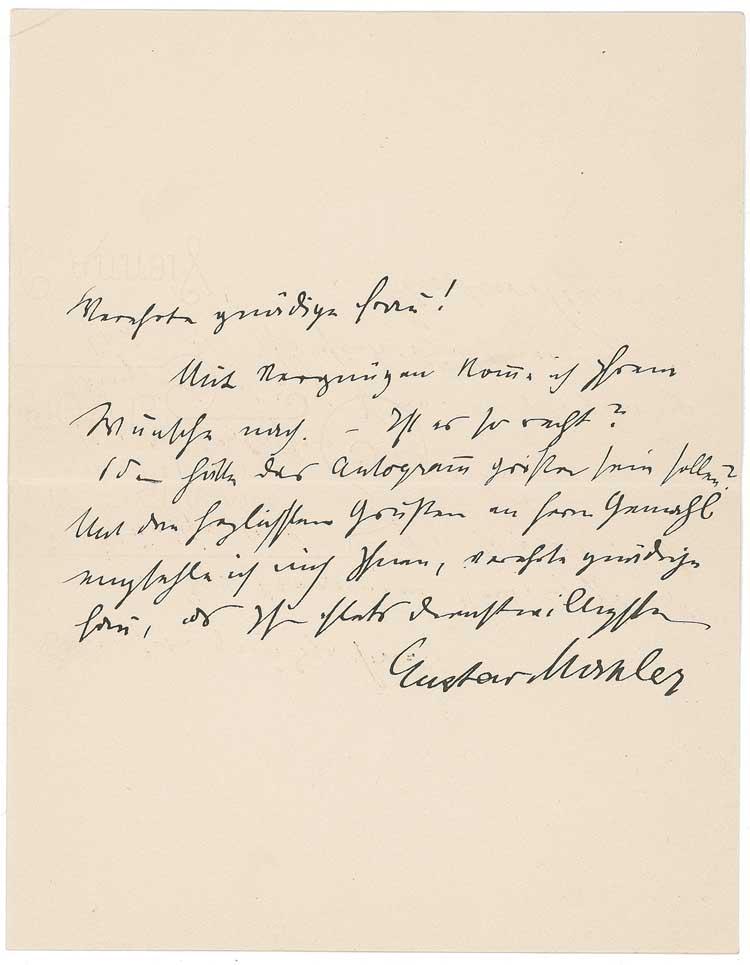 Verehrte gnädige Frau!
Mit Vergnügen kom̅e ich Ihrem
Wunsche nach. – Ist es so recht?
Oder hätte das Autogram̅ größer sein sollen?
Mit den herzlichsten Grüßen an Herrn Gemahl
empfehle ich mich Ihnen, verehrte gnädige
Frau, als Ihr stets dienstwilligster
Gustav Mahler